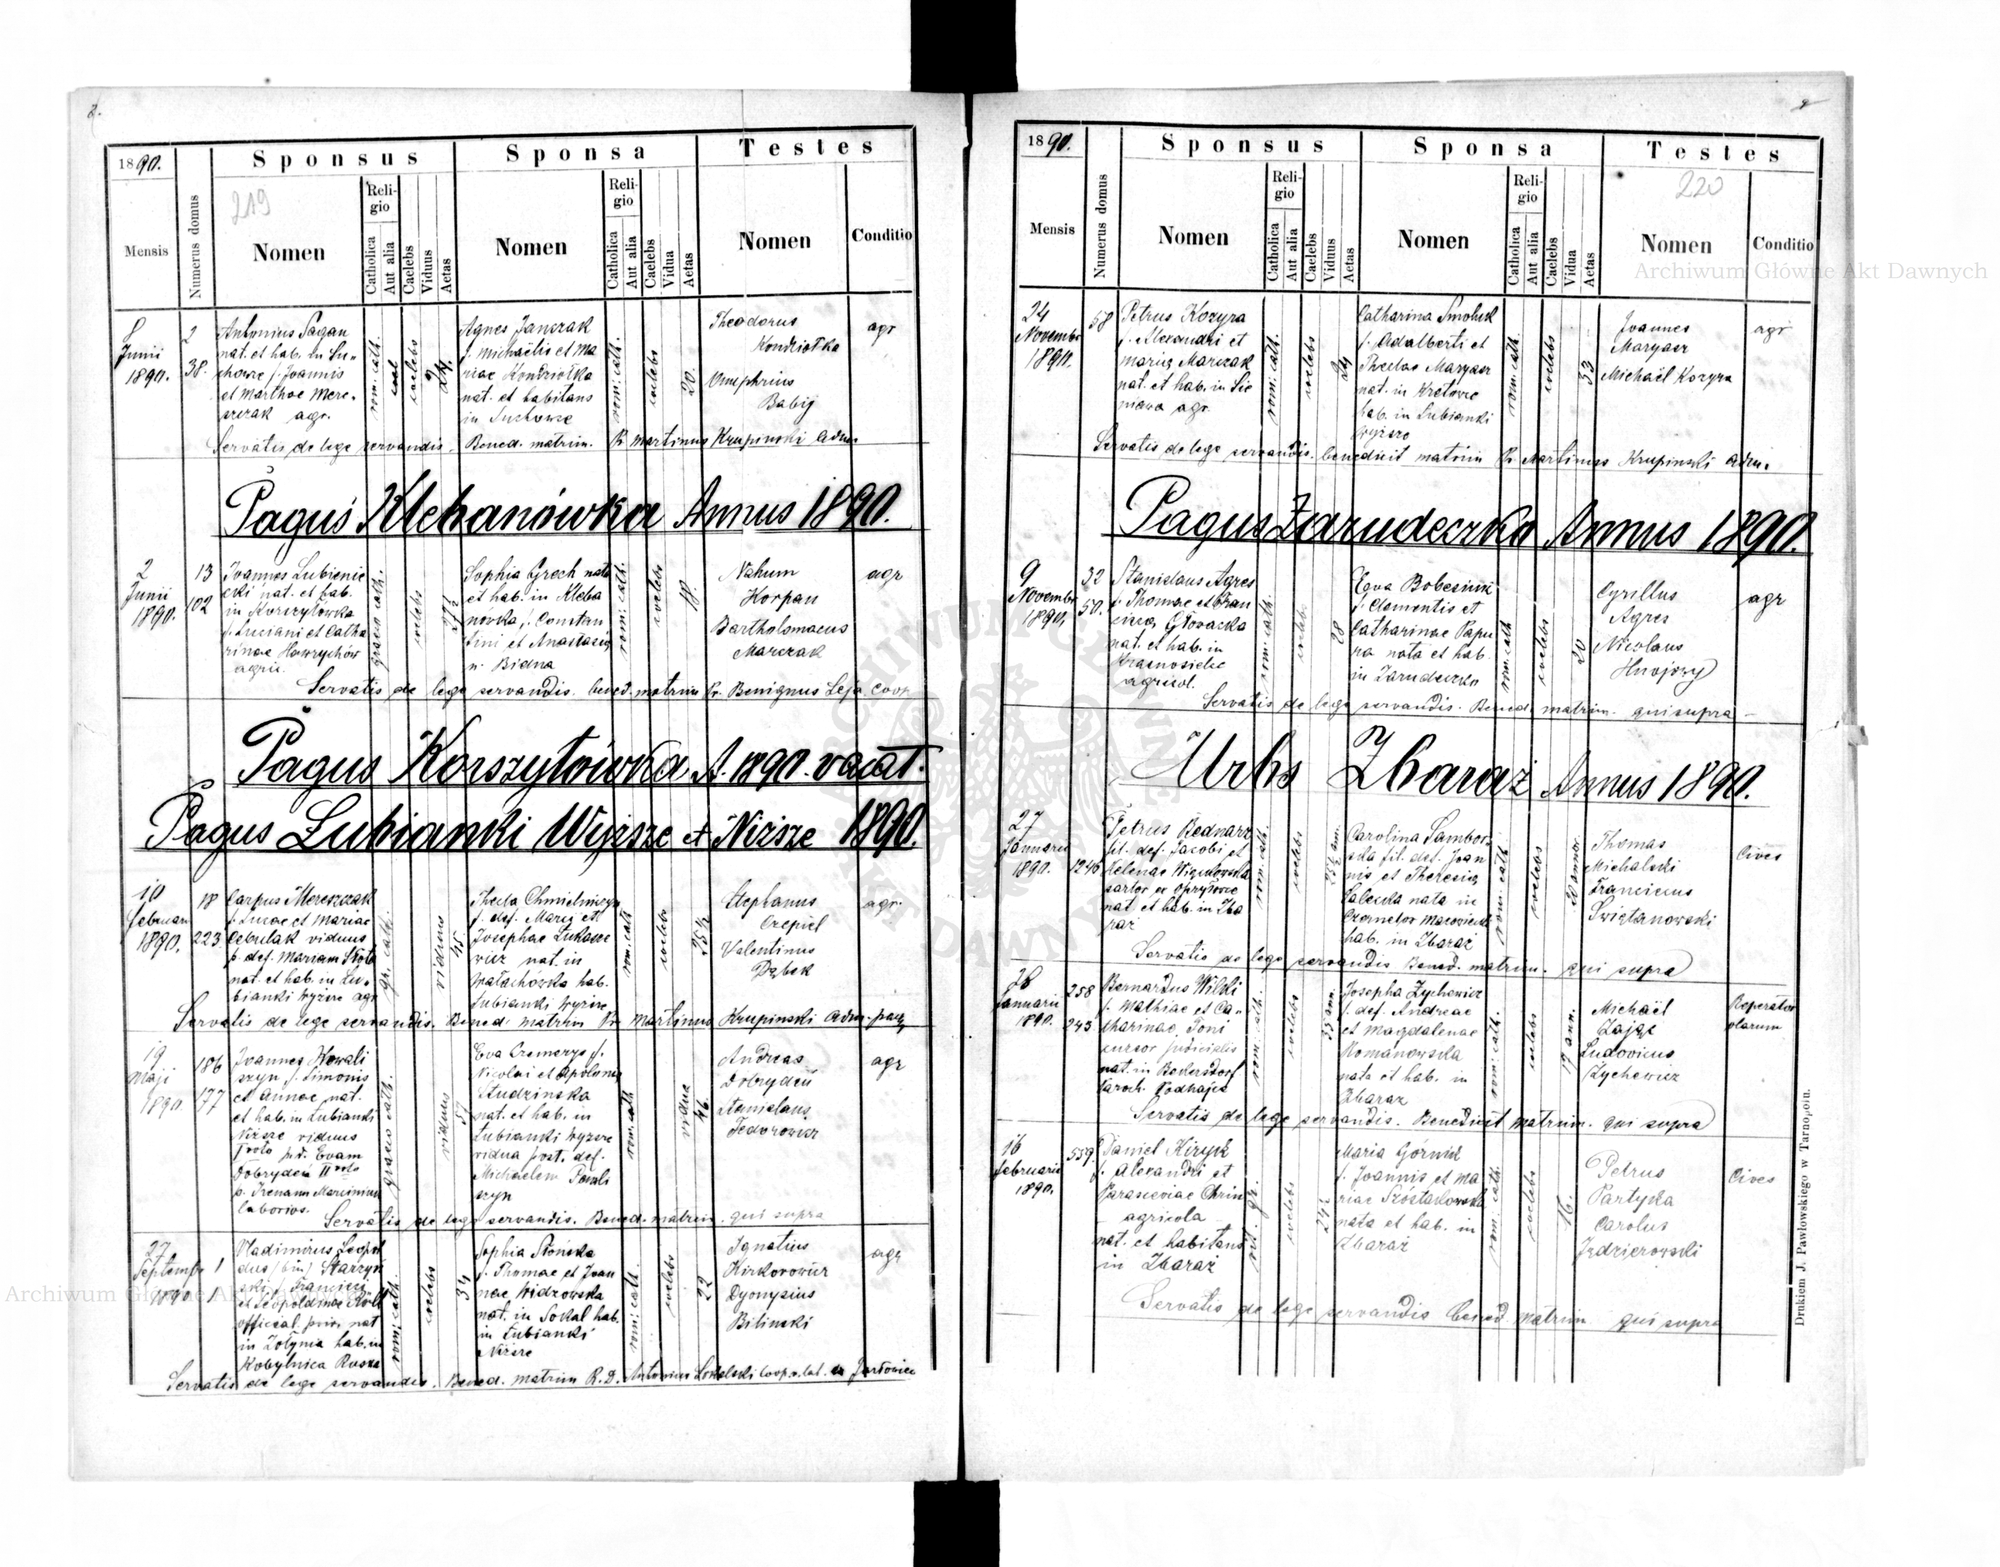 2.
1890.
Mensis
Numerus domus
Sponsus
219
Nomen
Religio
Catholica
Aut alia
Caelebs
Viduus
Aetas
Sponsa
Nomen
Religio
Catholica
Aut alia
Caelebs
Vidua
Aetas
Testes
Nomen
Conditio
Junii
1890.
2
38.
Antonius Pagan
nat. et hab. in Su-
f. Joannis
et Marthae Mere-
szczak agr.
rom: cath.
caelebs
24
Agnes Janczak
f. Michaëlis et Ma
riae Kondziołka
nat. et habitans
in
rom: cath.
caelebs
20.
Theodorus
Kondziołka
Onuphrius
Babij
agr
Servatis de lege servandis. Bened. matrim. Pr. Martinus Krupinski Adm
Pagus Klebanówka Annus 1890.
2
Junii
1890.
13
102
Joannes Lubienie
cki nat. et hab.
in Korszyłowka
f. Luciani et Catha
rinae Hawrychów
agric.
graeco cath.
caelebs
27½
Sophia Grech nata
et hab. in Kleba
nówka f. Constan
tini et Anastasiae
n. Biedna
rom: cath.
caelebs
18
Nahum
Korpan
Bartholomaeus
Marczak
agr
Servatis de lege servandis. bened. matrim Pr. Benignus Leja Coop
Pagus Korszyłówka A. 1890. vacat.
Pagus Lubianki Wyższe et Niższe 1890.
10
Februari
1890.
18
223
Carpus Mereszczak
f. Lucae et Mariae
Cebulak viduus
p. def. Mariam
nat. et hab. in Lu-
bianki wyższe agr
gr. cath.
viduus
45
Thecla
f. def. et
Josephae Łukasze
wicz nat. in
Małachówka hab.
Lubianki wyższe
rom. cath
caelebs
35½
Stephanus
Czepiel
Valentinus
Dąbek
agr.
Servatis de lege servandis. Bened. matrim Pr. Martinus Krupinski Adm.
19
Maji
1890.
186
177
Joannes Kowali
szyn f. Simonis
et Annae nat.
et hab. in Lubianki
Niższe viduus
Ivoto p. d. Evam
Dobrydeń II voto
p. Irenam
laborios.
graeco cath.
viduus
57
Eva f.
Nicolai et Apoloniae
Studzinska
nat. et hab. in
Lubianki wyższe
vidua post. def.
Michaelem
szyn
rom: cath
vidua
46.
Andreas
Dobrydeń
Stanislaus
Fedorowicz
agr
Servatis de lege servandis. Bened. matrim. qui supra
27
Septembr
1890.
1
1
Vladimirus Leopol
dus (bin) Starzyn
ski f. Francisci
et Leopoldinae
official. priv. nat
in Żołynia hab. in
Kobylnica Ruska
rom: cath.
caelebs
34
Sophia Słońska
f. Thomae et Joan
nae Widzowska
nat. in Sokal hab.
in Lubianki
Niższe
rom: cath.
caelebs
22
Ignatius
Kirkorowicz
Dyonysius
Bilinski
agr
Servatis de lege servandis. Bened. matrim R. D. Antonius coop. r. lat.
1890.
Mensis
Numerus domus
Sponsus
Nomen
Religio
Catholica
Aut alia
Caelebs
Viduus
Aetas
Sponsa
Nomen
Religio
Catholica
Aut alia
Caelebs
Vidua
Aetas
Testes
220
Nomen
Conditio
24
Novembr
1890.
58
Petrus Kozyra
f. Alexandri et
Mariae Marczak
nat. et hab. in Sie
niawa agr.
rom: cath.
caelebs
24
Catharina Smoluk
f. Adalberti et
Theclae Maryasz
nat. in Kretowce
hab. in Lubianki
wyższe
rom: cath.
caelebs
33
Joannes
Maryasz
Michaël Kozyra
agr
Servatis de lege servandis. benedixit matrim Pr. Martinus Krupinski Adm.
Pagus Zarudeczko Annus 1890.
9
Novembr
1890.
32
50.
Stanislaus Agres
f. Thomae et Fran
ciscae Głowacka
nat. et hab. in
Krasnosielce
agricol.
rom: cath.
caelebs
28
Eva Bobesiuk
f. Clementis et
Catharinae Papu
ra nata et hab.
in Zarudeczko
rom: cath
caelebs
20
Cyrillus
Agres
Nicolaus
Hnojowy
agr
Servatis de lege servandis. Bened. matrim. qui supra
Urbs Zbaraż Annus 1890.
27
Januarii
1890.
1246
Petrus Bednarz
fil. def. Jacobi et
Helenae
sartor ex Opryłowce
nat et hab. in Zba
raż
rom: cath.
caelebs
Carolina Sambor-
ska fil. def. Joan
nis et Theresiae
nata in
Czernelow Mazowiecki
hab. in Zbaraż
rom: cath.
caelebs
20 annor.
Thomas
Michalski
Franciscus
Swiętanowski
Cives
Servatis de lege servandis Bened. matrim. qui supra
28
Januarii
1890.
258
243
Bernardus Wilski
f. Mathiae et Ca-
tharinae Toni
cursor judicialis
nat. in Beckersdorf
Paroch. Podhajce
rom: cath.
caelebs
35 ann.
Josepha Zychewicz
f. def. Andreae
et Magdalenae
Romanowska
nata et hab. in
Zbaraż
rom: cath.
caelebs
19 ann.
Michaël
Zając
Ludovicus
Zychewicz
Servatis de lege servandis. Benedixit matrim. qui supra
16
Februarii
1890.
559.
Daniel Kizyk
f. Alexandri et
Parasceviae Chrin
agricola
nat. et habitans
in Zbaraż
caelebs
24½
Maria Górnik
f. Joannis et Ma
riae Szóstakowska
nata et hab. in
Zbaraż
rom: cath.
caelebs
16.
Petrus
Partyka
Carolus
Jędzierowski
Cives
Servatis de lege servandis bened. matrim. qui supra
Drukiem J. Pawłowskiego w Tarnopolu.
Archiwum Główne Akt Dawnych
Archiwum Główne Akt Dawnych
ARCHIWUM GŁÓWNE AKT DAWNYCH